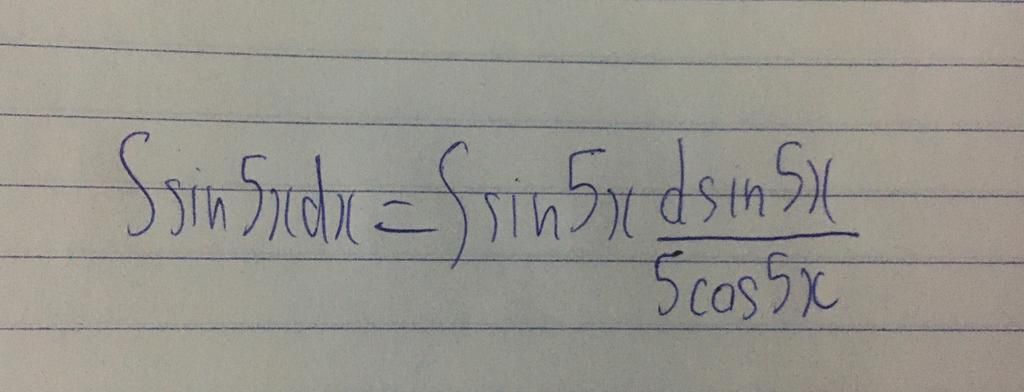 ∫sin5xdx=∫sin5x dsin5x/5cos5x